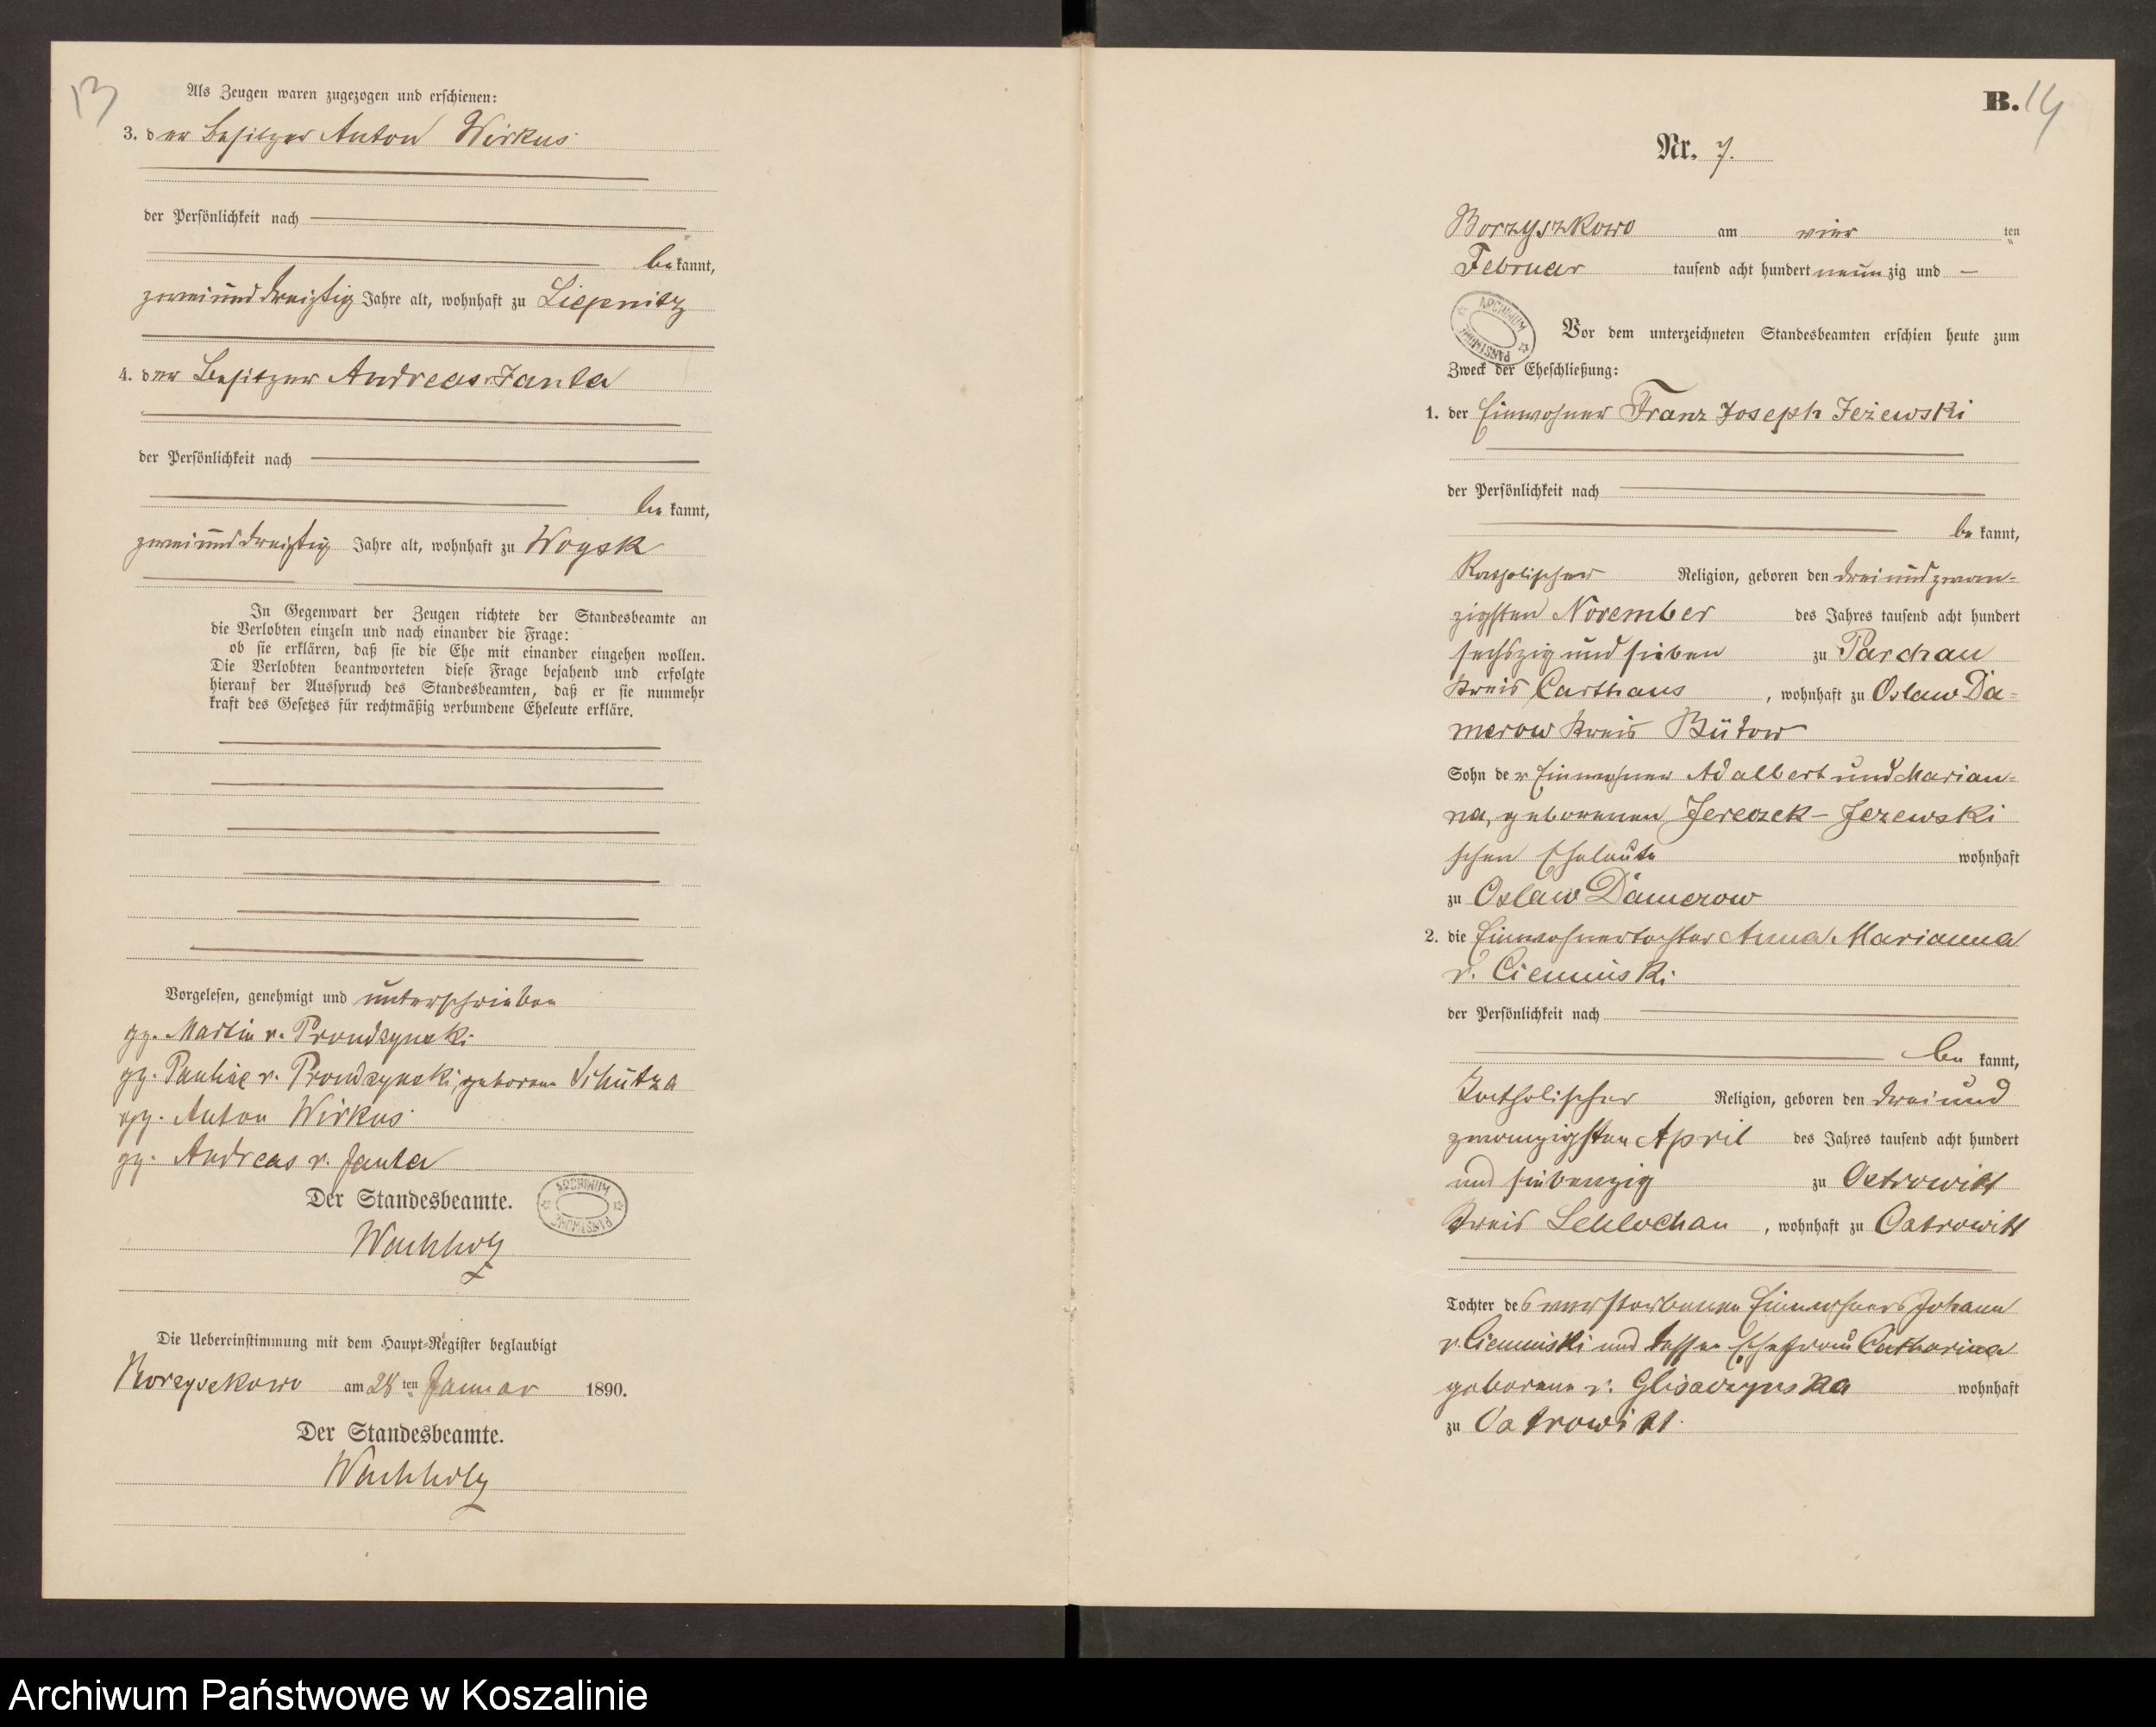 13
Als Zeugen waren zugezogen und erschienen:
3. der Besitzer Anton Wirkus
der Persönlichkeit nach
bekannt,
zweiunddreißig Jahre alt, wohnhaft zu Liepnitz
4. der Besitzer Andreas v. Janta
der Persönlichkeit nach
bekannt,
zweiunddreißig Jahre alt, wohnhaft zu Woysk
In Gegenwart der Zeugen richtete der Standesbeamte an
die Verlobten einzeln und nach einander die Frage:
ob sie erklären, daß sie die Ehe mit einander eingehen wollen.
Die Verlobten beantworteten diese Frage bejahend und erfolgte
hierauf der Ausspruch des Standesbeamten, daß er sie nunmehr
kraft des Gesetzes für rechtmäßig verbundene Eheleute erkläre.
Vorgelesen, genehmigt und unterschrieben
gz. Martin v. Prondzynski
gz. Pauline v. Prondzynski, geborene Schütza
gz. Anton Wirkus
gz. Andreas v. Janta
Der Standesbeamte.
ARCHIWUM PAŃSTWOWE
Wachholz
Die Uebereinstimmung mit dem Haupt-Register beglaubigt
Borzyskowo am 28 ten Januar 1890.
Der Standesbeamte.
Wachholz
B. 14
Nr. 7.
Borzyszkowo am vier ten
Februar tausend acht hundert neunzig und —
ARCHIWUM PAŃSTWOWE
Vor dem unterzeichneten Standesbeamten erschien heute zum
Zweck der Eheschließung:
1. der Einwohner Franz Joseph Jeżewski
der Persönlichkeit nach
bekannt,
Katholischer Religion, geboren den dreiundzwan-
zigsten November des Jahres tausend acht hundert
sechszig und sieben zu Parchau
Kreis Carthaus, wohnhaft zu Oslaw Da-
merow Kreis Bütow
Sohn der Einwohner Adalbert und Marian-
na, geborenen Jereczek - Jezewski
schen Eheleute wohnhaft
zu Oslaw Damerow
2. die Einwohnertochter Anna Marianna
v. Ciemniski
der Persönlichkeit nach
bekannt,
Katholischer Religion, geboren den dreiund
zwanzigsten April des Jahres tausend acht hundert
und siebenzig zu Ostrowitt
Kreis Schlochau, wohnhaft zu Ostrowitt
Tochter des verstorbenen Einwohners Johann
v. Ciemniski und dessen Ehefrau Catharina
geborene v. wohnhaft
zu Ostrowitt.
Archiwum Państwowe w Koszalinie